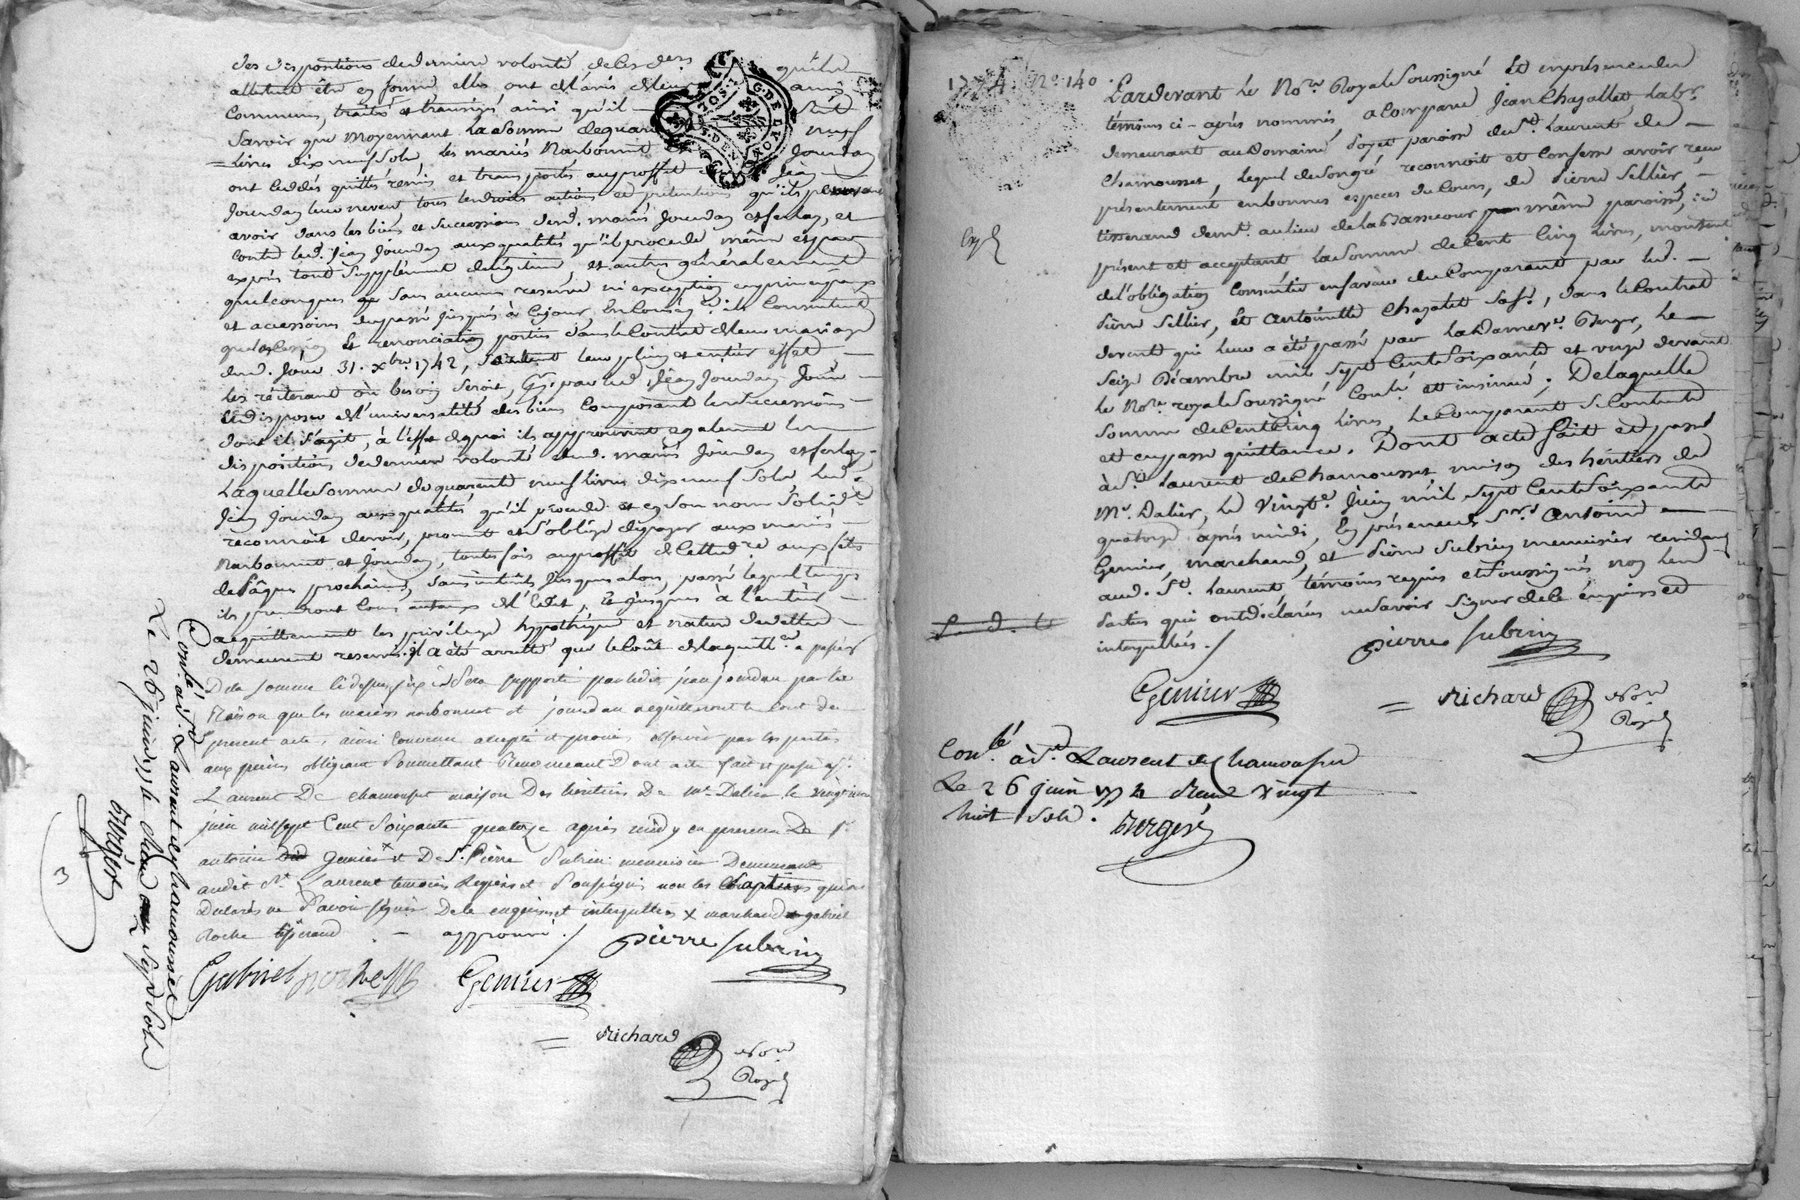 des dispositions de derniere volonté de les ders qu'elle
allelull être en forme elles ont
communs, traités et transigés ainsi qu'il suit
savoir que moyennant la somme de quarante neuf
livres dix neuf sols, les mariés Narbonnet Jourdan
ont ceddés quittés remis et transportés au proffit Jean
Jourdan leur neveu tous les droits actions et prétentions qu'ils peuvent
avoir dans les biens et successions desd. mariés Jourdan et ferlay, et
contre led. Jean Jourdan aux qualités qu'il procede même et par
exprès tout supplément de légitime, et autres généralement
quelconques sans aucune reserve ni exception en principaux
et accessoires du passé jusques à ce jour, ils consentent
que la cession et renonciation portée dans le contrat de leur mariage
dud. jour 31. xbre 1742, sortent leur plein et entier effet
les réiterant où besoin seroit, par led. Jean Jourdan
disposer de l'universalité des biens composant les successions
dont il s'agit, à l'effet de quoi ils approuvent egalement les
dispositions de derniere volonté desd. mariés Jourdan et ferlay,
Laquelle somme de quarante neuf livres dix neuf sols led.
Jean Jourdan aux qualités qu'il procede et en son nom solidt.
reconnoit devoir, promet et s'oblige de payer aux mariés
Narbonnet et Jourdan, toutefois au proffit de lettred. re aux fêtes
de Pâques prochaines, sans intérêts jusques alors, passé lequel temps
ils prendront cours au taux de l'édit, et jusques à l'entier
acquittement les privilege hypothèque et nature de dette
demeurent reservés. il a été arretté que le coût de la quittce. a passer
De la somme ci dessus sera supporté par ledit jean jourdan par la
Raison que les mariés narbonnet et jourdan acquitteront le cout du
present acte, ainsi convenu accepté et promis observer par les parties
aux peines obligeant soumettant Renonceant Dont acte fait et passé a St.
Laurent De chamousset maison Des héritiers De mr. Dalier le vingt
juin mil sept Cent Soixante quatorze après midy en presence De Sr.
antoine Genier x et De Sr. Pierre Subrin menuisier Demeurant
audit St. Laurent temoins Requis et Soussignés non les parties qui ont
Declarés ne sçavoir signer De ce enquises et interpellées x marchand gabriel
Roche tisserand approuvé ./. pierre subrin
Gabriel roche Genier
= Richard Nore
Royal
Conlé. à St. Laurent de chamousset
Le 26 juin 1774 sols
Bergier
3
1774 No. 140
Pardevant Le Nore. Royal Soussigné Et en présence des
témoins ci-après nommés a comparu Jean Chazallet Labr.
demeurant au Domaine paroisse de St. Laurent de
Chamousset, lequel de son gré reconnoit et confesse avoir reçu
présentement en bonnes espèces du cours, de Pierre Sellier,
tisserand demt. au lieu de la même paroisse, ici
présent et acceptant la somme de Cent Cinq livres, montant
de l'obligation consentie en faveur du Comparant par led.
Pierre Sellier, et Antoinette Chazalet sa fe., dans le contrat
de vente qui leur a été passé par la Dame ve. Berger, le
seize Décembre mil Sept Cent Soixante et onze devant
le Nore. royal Soussigné Conlé et insinué; De laquelle
somme de Cent Cinq livres, le Comparant se contente
et en passe quittance. Dont acte fait et passé
à St. Laurent de Chamousset maison des héritiers de
Mr. Dalier, le vingte. juin mil sept Cent Soixante
quatorze après midi, En présence de Srs. Antoine
Genier, marchand, et Pierre Subrin menuisier residans
aud. St. Laurent, témoins requis et Soussignés non les
Parties qui ont déclarés ne savoir signer de ce enquises et
interpellées ./. pierre subrin
Genier = Richard Nore
Royal
Conlé. à St. Laurent de Chamousset
Le 26 juin 1774 Reçu vingt
huit sols. Bergier